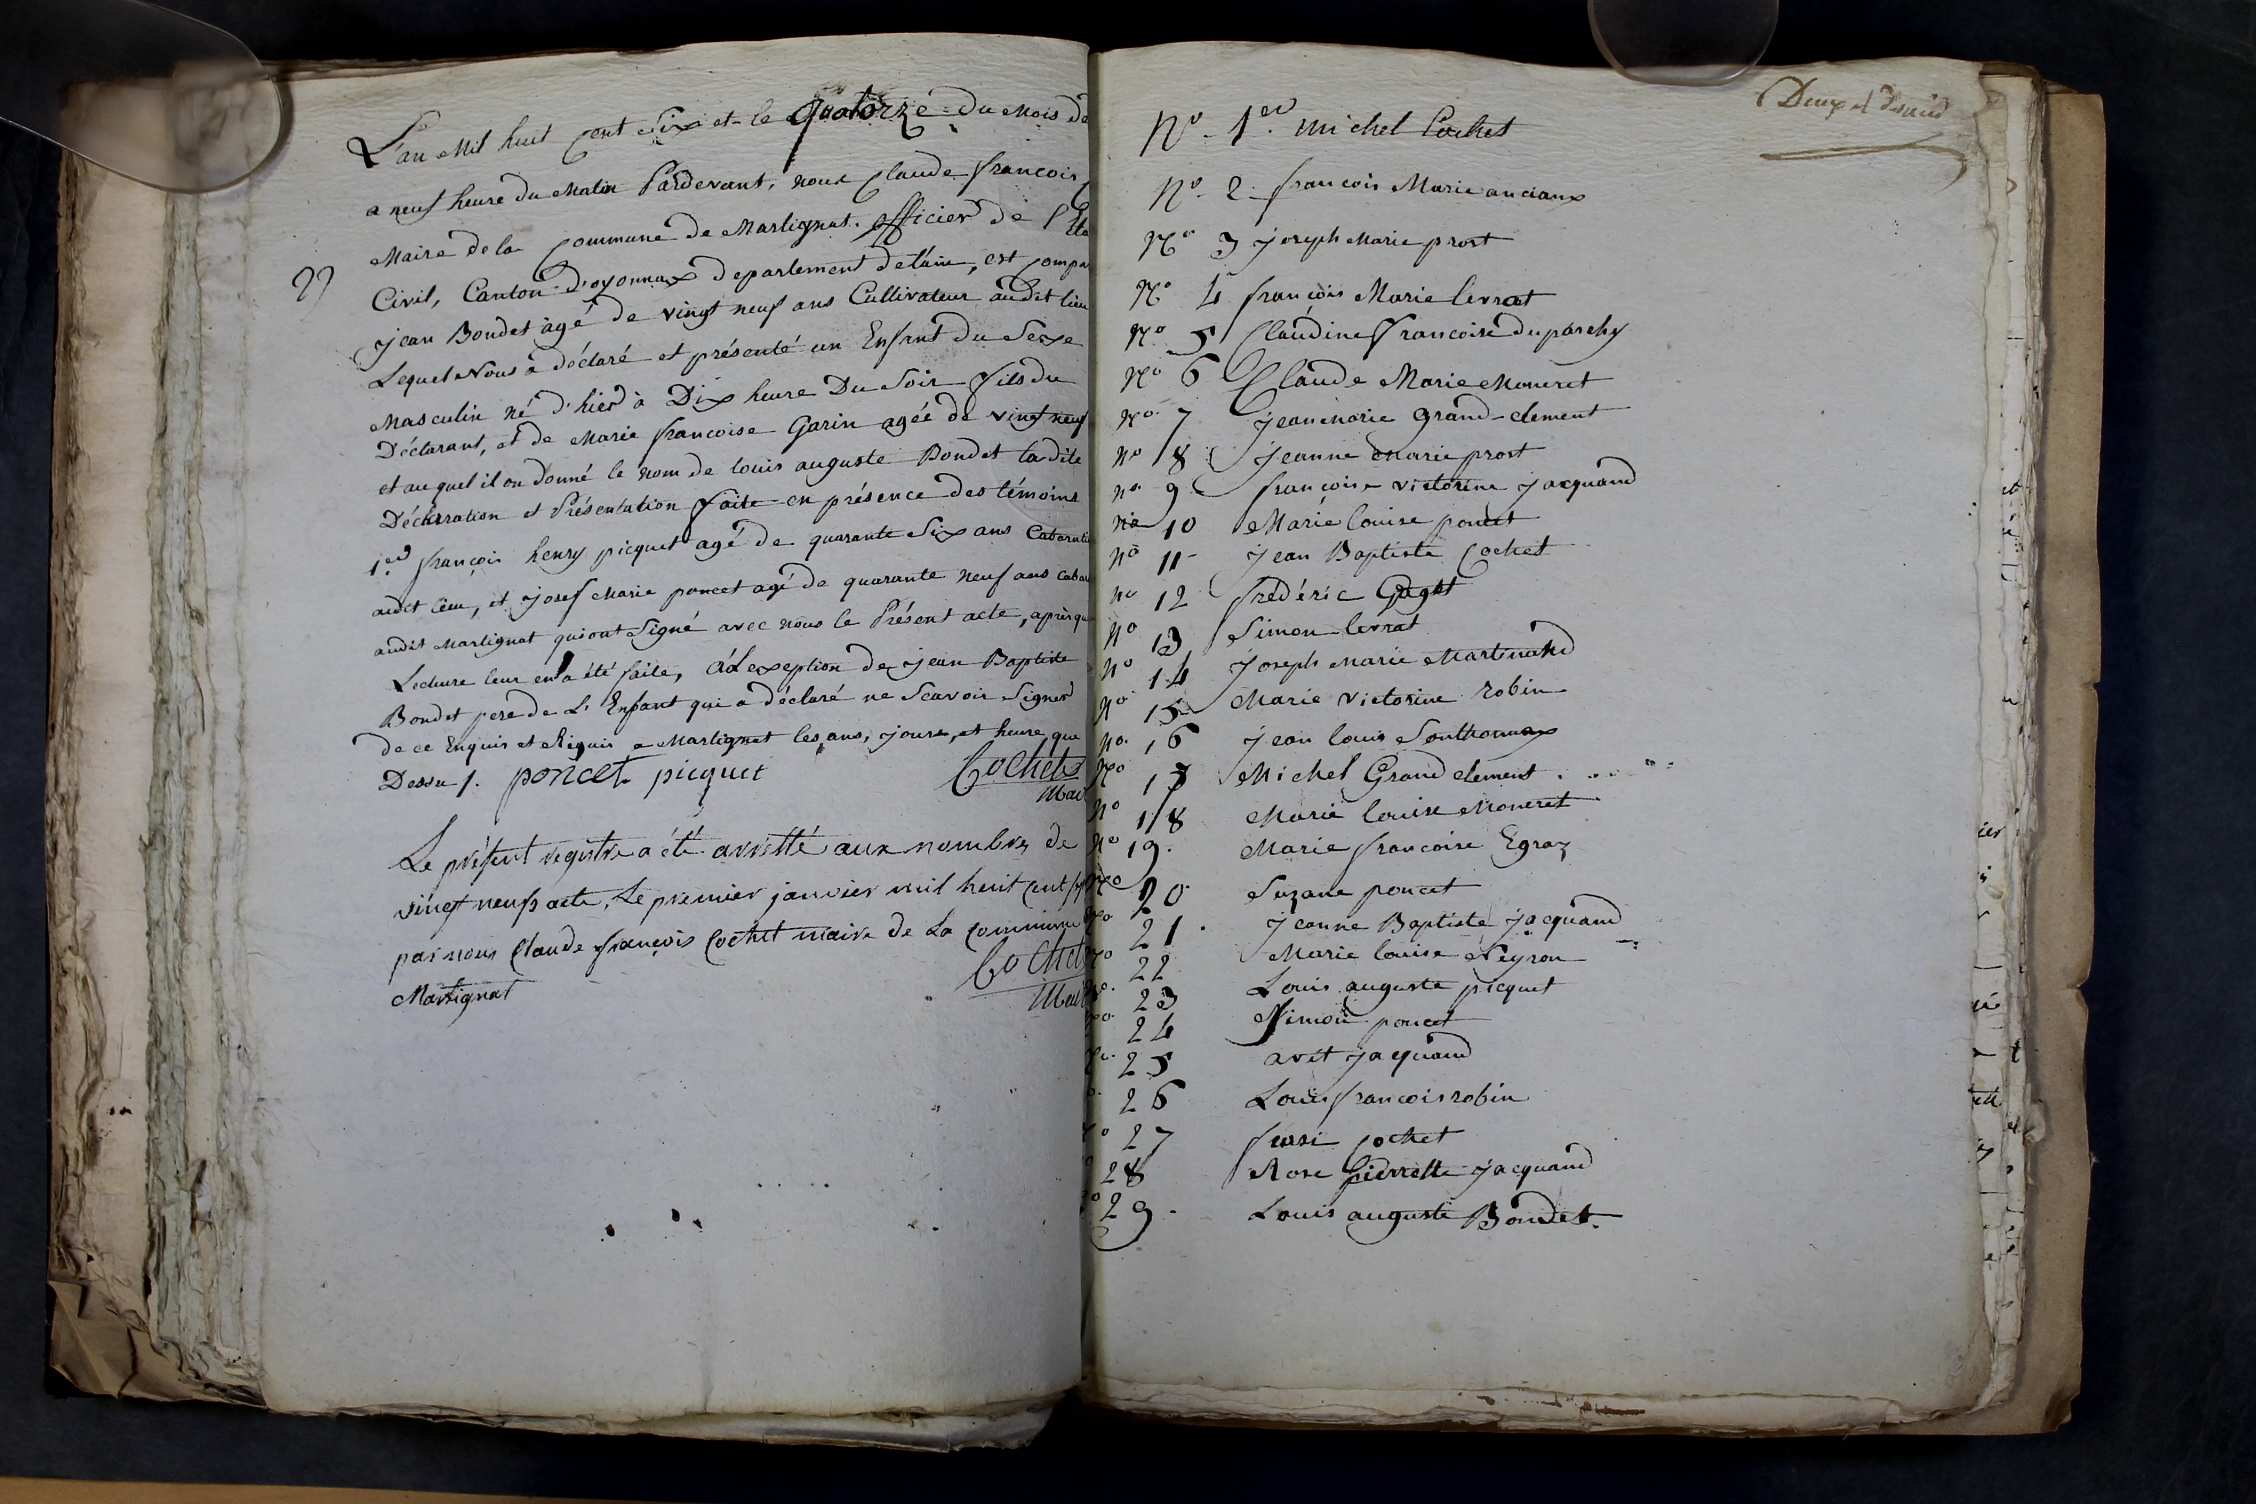 L'an Mil huit Cent Six et le Quatorze du Mois de
a neuf heure du Matin Pardevant, nous Claude francois
Maire de la Commune de Martignat. officier de l'Eta
Civil, Canton d'oyonnax departement de l'ain, est Compa
jean Bondet âgé de vingt neuf ans Cultivateur audit lieu
Lequel Nous a déclaré et présenté un Enfant du Sexe
29
Masculin né d'hier à Dix heure Du Soir fils du
Déclarant, et de Marie francoise Garin agée de vingt neuf
et au quel il on donné le nom de louis auguste Bondet la dite
Déclarration et Présentation faite en présence des témoins
1er françois henry picquet agé de quarante Six ans Cabaretie
audit lieu, et josef Marie poncet agé de quarante neuf ans cabar
audit Martignat qui ont Signé avec nous le Présent acte, après que
Lecture leur en a été faite, à L'exeption de jean Baptiste
Bondet pere de L'Enfant qui a déclaré ne Scavoir Signer
de ce Enquis et Réquis a Martignat les ans, jours, et heure, que
Dessus. poncet picquet Cochet
Mai
Le présent registre a été arretté aux nombre de
vingt neufs acte, Le premier janvier mil huit Cent
par nous Claude françois Cochet maire de La Commune
Martignat Cochet
Mai
No. 1er michel Cochet
No. 2. francois Marie anciaux
No 3 joseph Marie prost
No 4 françois Marie levrat
No 5 Claudine francoise duparchy
No 6 Claude Marie Moneret
No. 7 jean Marie grand-clement
No 8 jeanne Marie prost
no 9 françoise victorine jacquand
no 10 Marie louise poncet
no 11 jean Baptiste Cochet
no 12 fréderic Gagot
No 13 Simon levrat
No 14 joseph Marie Martinand
No 15 Marie victorine robin
No. 16 jean louis Sonthonnax
No 17 Michel Grand clement
No 18 Marie louise Moneret
No 19. Marie francoise Egraz
No 20 Suzane poncet
No 21 jeanne Baptiste jacquand
No 22 Marie louise Neyron
No. 23 Louis auguste picquet
No. 24 Simon poncet
No. 25 avit jacquand
26 Louis francois robin
No 27 Cochet
28 Rose pierrette jacquand
No 29. Louis auguste Bondet.